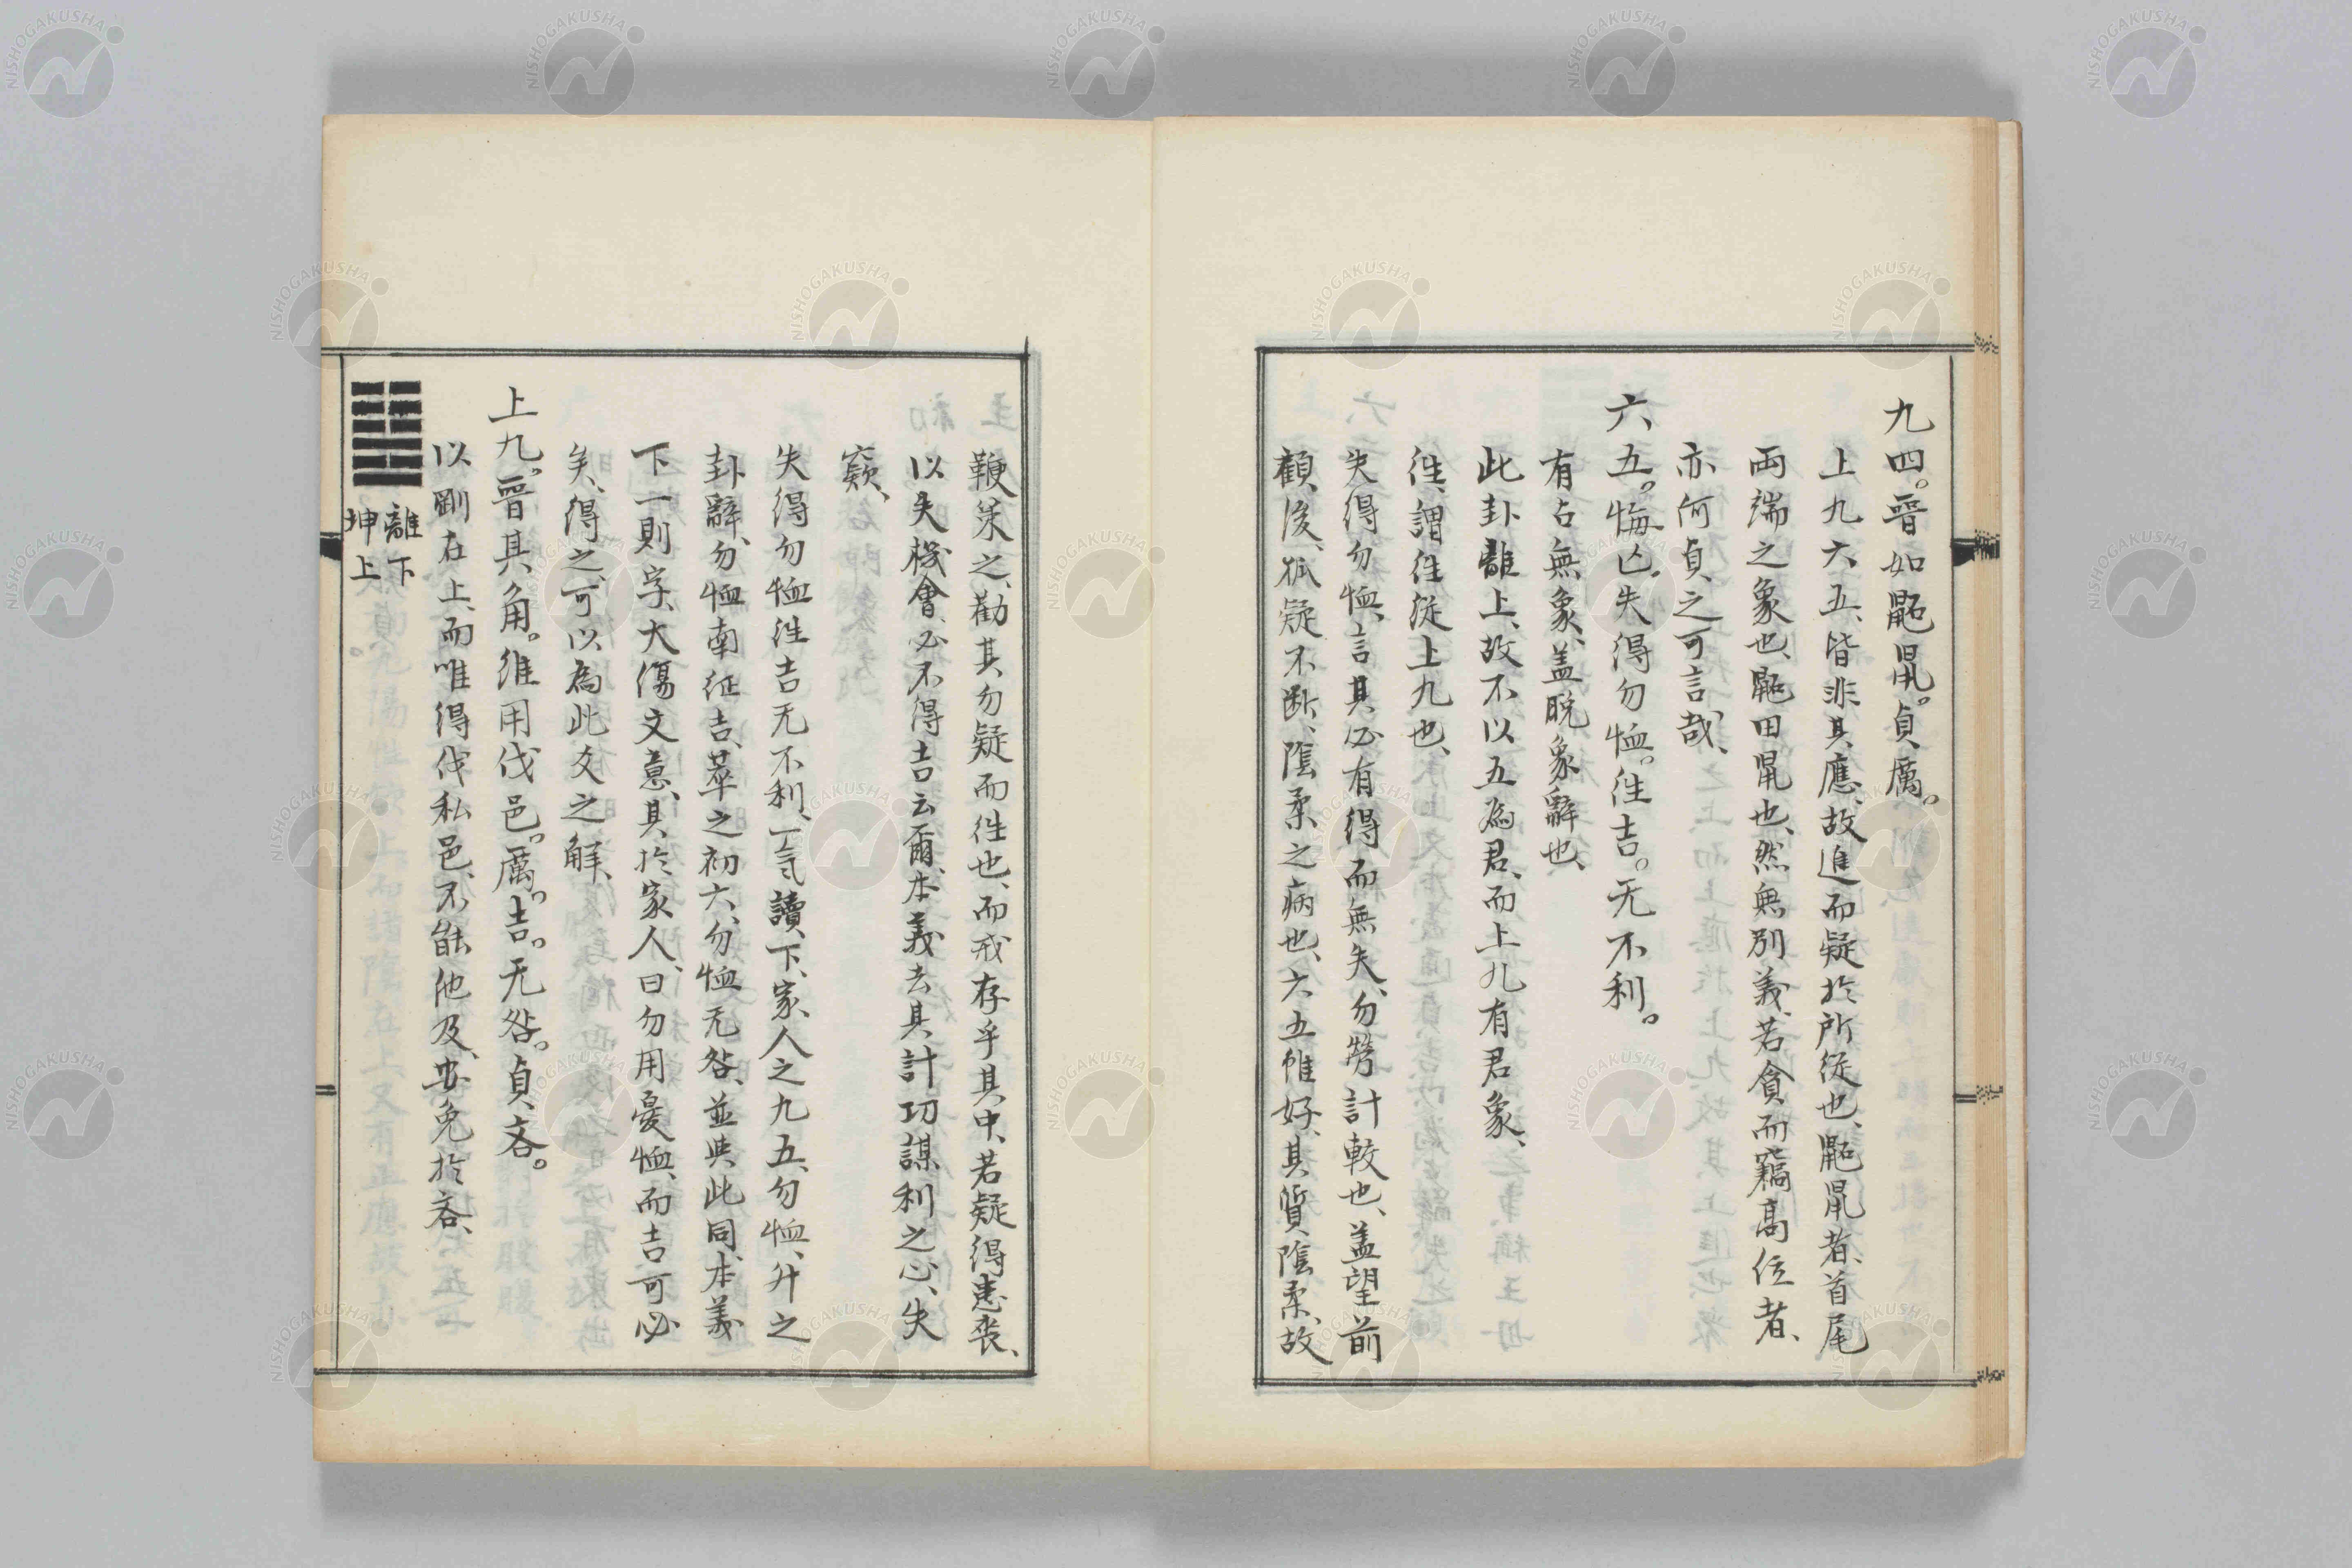 九四。晉如鼫鼠。貞厲。
上九六五、皆非其應、故進而疑於所從也、鼫鼠者、首尾
兩端之象也、鼫田鼠也、然無別義、若貪而竊高位者、
亦何貞之可言哉、
六五。悔亡。失得勿恤。往吉。无不利。
有占無象、蓋脫象辭也、
此卦離上、故不以五為君、而上九有君象、
往、謂往從上九也、
失得勿恤、言其必有得而無失、勿勞計較也、蓋望前
顧後、狐疑不斷、陰柔之病也、六五惟好、其質陰柔、故
鞭策之、勸其勿疑而往也、而戒存乎其中、若疑得患喪、
以失機會、必不得吉云爾、本義去其計功謀利之心、失
窾、
失得勿恤往吉无不利、一氣讀下、家人之九五、勿恤、升之
卦辭、勿恤南征吉、萃之初六、勿恤无咎、並與此同、本義
下一則字、大傷文意、其於家人、曰勿用憂恤、而吉可必
矣、得之、可以為此爻之解、
上九。晉其角。維用伐邑。厲。吉。无咎。貞吝。
以剛在上、而唯得伐私邑、不能他及、安免於吝、
離下
坤上
NISHOGAKUSHA